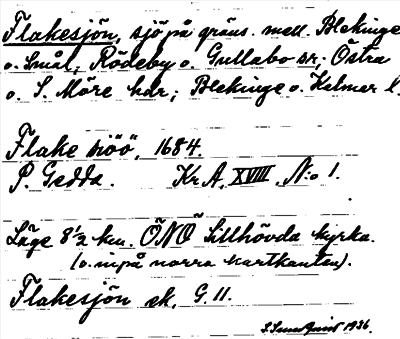 Flakesjön, sjö på gräns. mell. Blekinge
o. Smål; Rödeby o. Gullabo sr; Östra
o. S. Möre här; Blekinge o. Kalmar l.
Flake siöö, 1684.
P. Gedda. Kr.A. XVIII. N:o 1.
Läge 8 1/2 km. ÖNÖ Sillhövda kyrka.
(o. inpå norra kartkanten).
Flakesjön ek. G. 11.
1936.